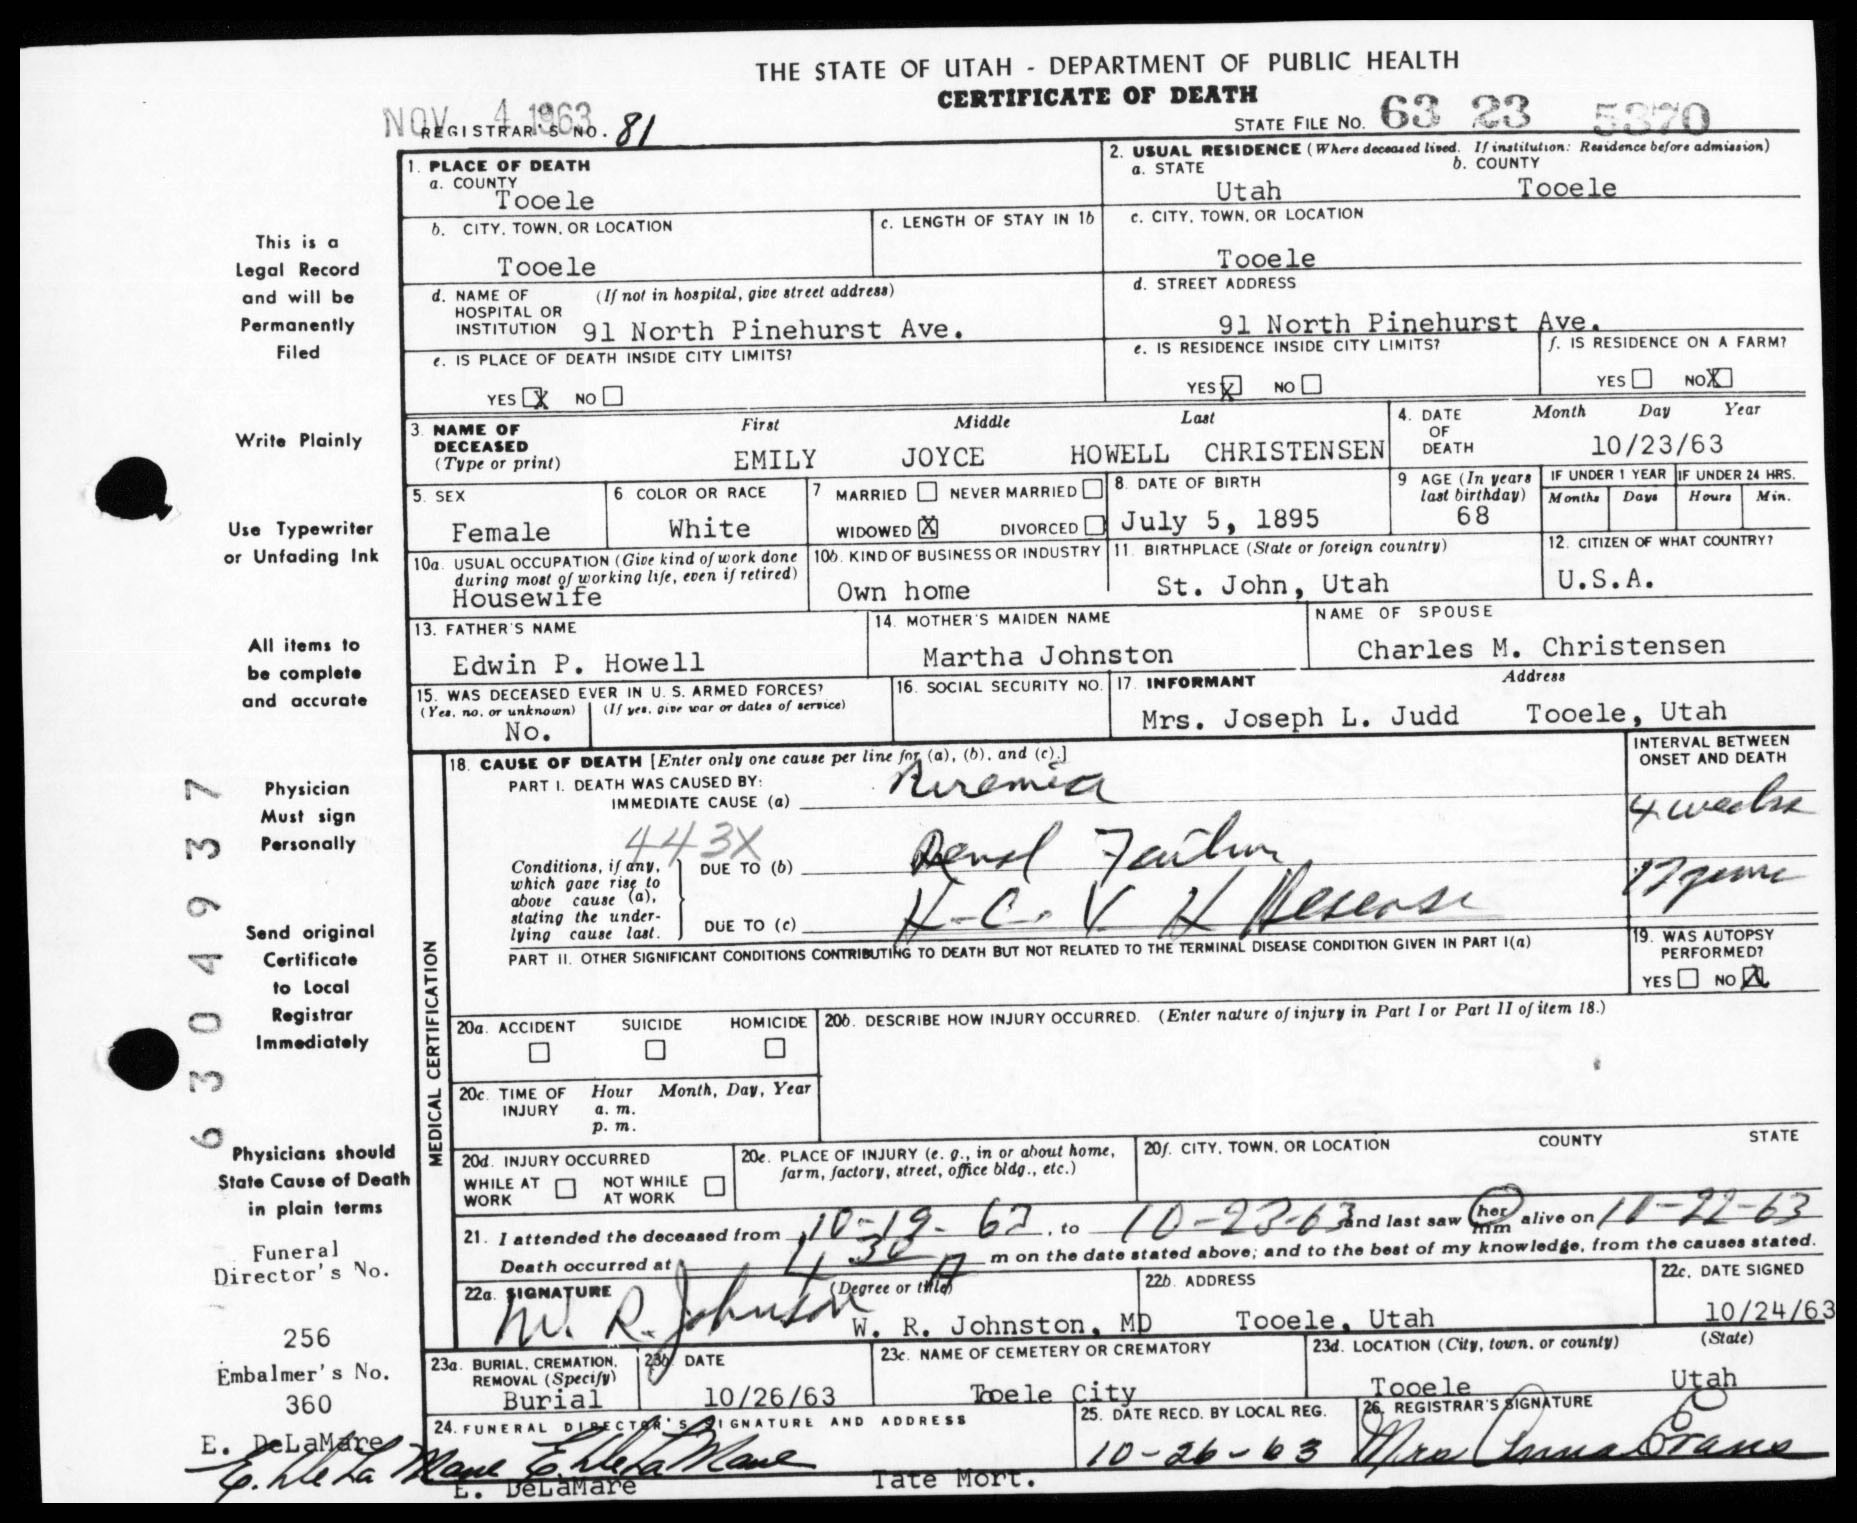 THE STATE OF UTAH - DEPARTMENT OF PUBLIC HEALTH
CERTIFICATE OF DEATH
NOV 4 1963
REGISTRAR'S NO. 81
STATE FILE NO. 63 23 5370
1. PLACE OF DEATH
a. COUNTY
Tooele
2. USUAL RESIDENCE (Where deceased lived. If institution: Residence before admission)
a. STATE b. COUNTY
Utah Tooele
b. CITY, TOWN, OR LOCATION
Tooele
c. LENGTH OF STAY IN 1b
c. CITY, TOWN, OR LOCATION
Tooele
d. NAME OF (If not in hospital, give street address)
HOSPITAL OR
INSTITUTION 91 North Pinehurst Ave.
d. STREET ADDRESS
91 North Pinehurst Ave.
e. IS PLACE OF DEATH INSIDE CITY LIMITS?
YES X NO
e. IS RESIDENCE INSIDE CITY LIMITS?
YES X NO
f. IS RESIDENCE ON A FARM?
YES NO X
3. NAME OF
DECEASED
(Type or print)
First Middle Last
EMILY JOYCE HOWELL CHRISTENSEN
4. DATE
OF
DEATH
Month Day Year
10/23/63
5. SEX
Female
6 COLOR OR RACE
White
7 MARRIED NEVER MARRIED
WIDOWED X DIVORCED
8. DATE OF BIRTH
July 5, 1895
9 AGE (In years
last birthday)
68
IF UNDER 1 YEAR
Months Days
IF UNDER 24 HRS.
Hours Min.
10a. USUAL OCCUPATION (Give kind of work done
during most of working life, even if retired)
Housewife
10b. KIND OF BUSINESS OR INDUSTRY
Own home
11. BIRTHPLACE (State or foreign country)
St. John, Utah
12. CITIZEN OF WHAT COUNTRY?
U.S.A.
13. FATHER'S NAME
Edwin P. Howell
14. MOTHER'S MAIDEN NAME
Martha Johnston
NAME OF SPOUSE
Charles M. Christensen
15. WAS DECEASED EVER IN U. S. ARMED FORCES?
(Yes, no, or unknown) (If yes, give war or dates of service)
No.
16. SOCIAL SECURITY NO.
17. INFORMANT Address
Mrs. Joseph L. Judd Tooele, Utah
MEDICAL CERTIFICATION
18. CAUSE OF DEATH [Enter only one cause per line for (a), (b), and (c).]
PART I. DEATH WAS CAUSED BY:
IMMEDIATE CAUSE (a) Uremia
INTERVAL BETWEEN
ONSET AND DEATH
4 weeks
443X
Conditions, if any,
which gave rise to
above cause (a),
stating the under-
lying cause last.
DUE TO (b) Renal Failure
DUE TO (c) H-C. V H Disease
PART II. OTHER SIGNIFICANT CONDITIONS CONTRIBUTING TO DEATH BUT NOT RELATED TO THE TERMINAL DISEASE CONDITION GIVEN IN PART I(a)
19. WAS AUTOPSY
PERFORMED?
YES NO X
20a. ACCIDENT SUICIDE HOMICIDE
20b. DESCRIBE HOW INJURY OCCURRED. (Enter nature of injury in Part I or Part II of item 18.)
20c. TIME OF
INJURY
Hour Month, Day, Year
a. m.
p. m.
20d. INJURY OCCURRED
WHILE AT
WORK
NOT WHILE
AT WORK
20e. PLACE OF INJURY (e. g., in or about home,
farm, factory, street, office bldg., etc.)
20f. CITY, TOWN, OR LOCATION COUNTY STATE
21. I attended the deceased from 10-19-62, to 10-23-63 and last saw her him alive on 10-22-63
Death occurred at 4 30 A m on the date stated above; and to the best of my knowledge, from the causes stated.
22a. SIGNATURE (Degree or title)
W. R. Johnston
W. R. Johnston, MD
22b. ADDRESS
Tooele, Utah
22c. DATE SIGNED
10/24/63
23a. BURIAL, CREMATION,
REMOVAL (Specify)
Burial
23b. DATE
10/26/63
23c. NAME OF CEMETERY OR CREMATORY
Tooele City
23d. LOCATION (City, town, or county) (State)
Tooele Utah
24. FUNERAL DIRECTOR'S SIGNATURE AND ADDRESS
E. DeLaMare
E. DeLaMare Tate Mort.
25. DATE RECD. BY LOCAL REG.
10-26-63
26. REGISTRAR'S SIGNATURE
Mrs Anna Evans
This is a
Legal Record
and will be
Permanently
Filed
Write Plainly
Use Typewriter
or Unfading Ink
All items to
be complete
and accurate
Physician
Must sign
Personally
Send original
Certificate
to Local
Registrar
Immediately
Physicians should
State Cause of Death
in plain terms
Funeral
Director's No.
256
Embalmer's No.
360
E. DeLaMare
E. DeLaMare
6304937